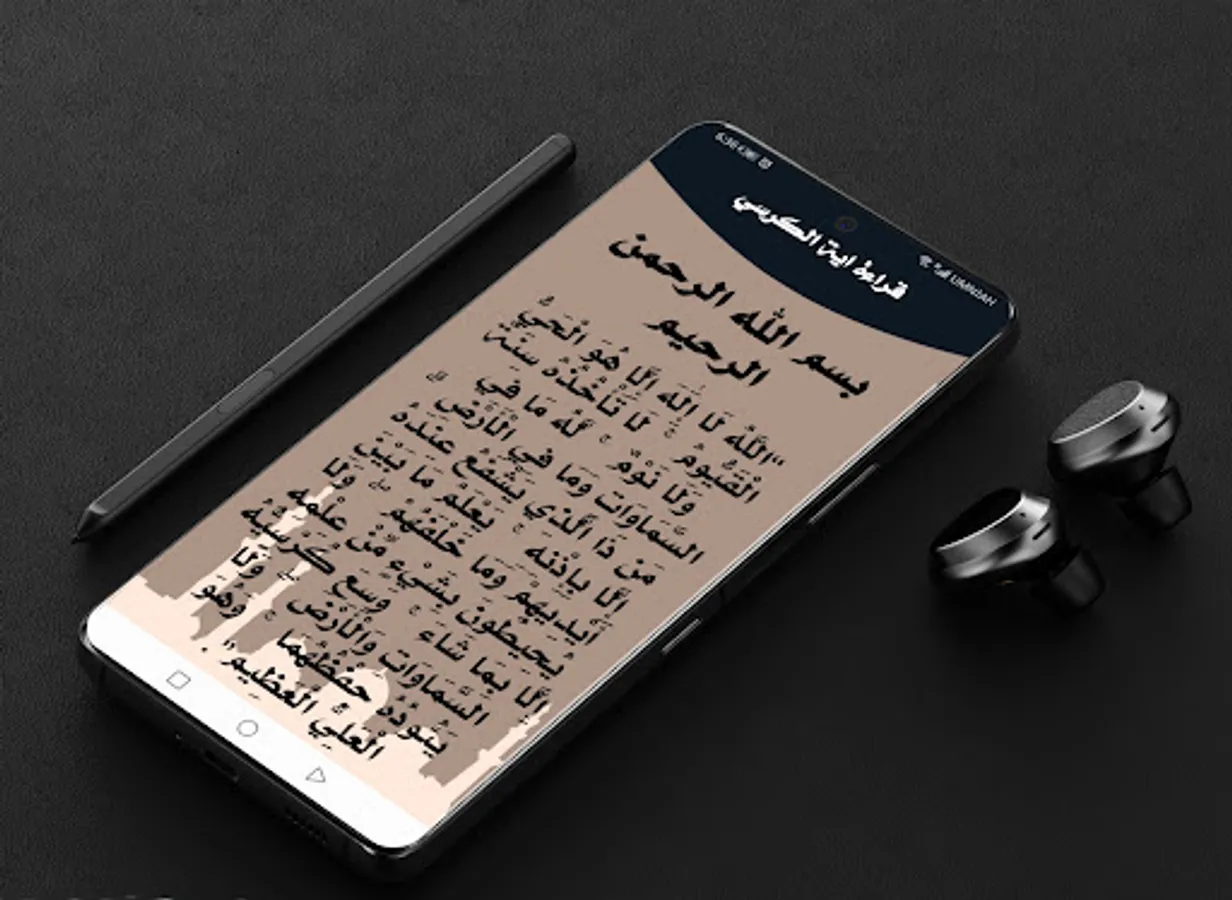 UMNIAH
قراءة اية الكرسي
بسم الله الرحمن
الرحيم
"اللَّهُ لَا إِلَٰهَ إِلَّا هُوَ الْحَيُّ
الْقَيُّومُ ۚ لَا تَأْخُذُهُ سِنَةٌ
وَلَا نَوْمٌ ۚ لَّهُ مَا فِي
السَّمَاوَاتِ وَمَا فِي الْأَرْضِ ۗ
مَن ذَا الَّذِي يَشْفَعُ عِندَهُ
إِلَّا بِإِذْنِهِ ۚ يَعْلَمُ مَا بَيْنَ
أَيْدِيهِمْ وَمَا خَلْفَهُمْ ۖ وَلَا
يُحِيطُونَ بِشَيْءٍ مِّنْ عِلْمِهِ
إِلَّا بِمَا شَاءَ ۚ وَسِعَ كُرْسِيُّهُ
السَّمَاوَاتِ وَالْأَرْضَ ۖ وَلَا
يَئُودُهُ حِفْظُهُمَا ۚ وَهُوَ
الْعَلِيُّ الْعَظِيمُ".